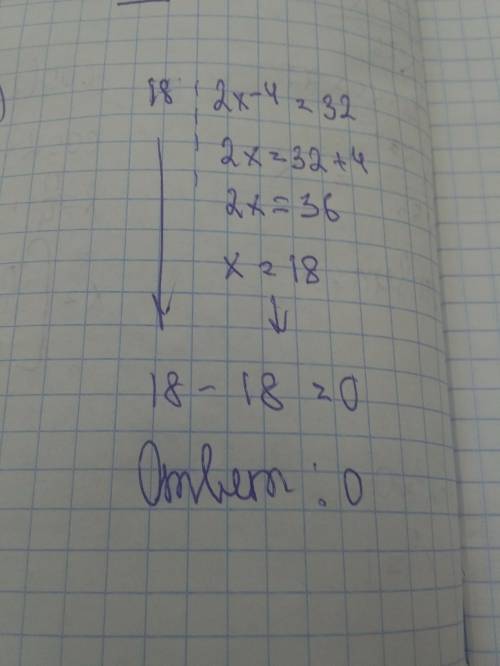 18 | 2x-4=32
2x=32+4
2x=36
x=18
18-18=0
Ответ: 0